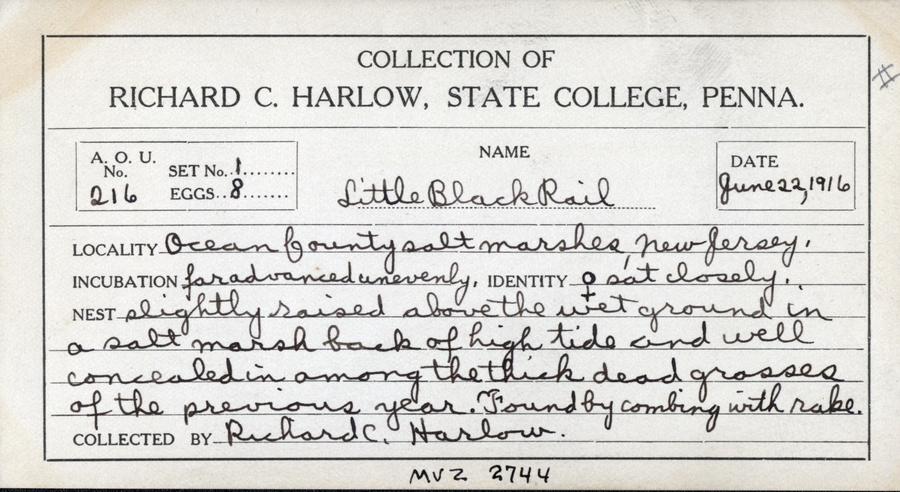 COLLECTION OF
RICHARD C. HARLOW, STATE COLLEGE, PENNA.
A. O. U. No. 216
SET No. 1
EGGS 8
NAME
Little Black Rail
DATE
June 22, 1916
LOCALITY Ocean County salt marshes, New Jersey.
INCUBATION far advanced unevenly. IDENTITY ♀ sat closely.
NEST slightly raised above the wet ground in
a salt marsh back of high tide and well
concealed in among the thick dead grasses
of the previous year. Found by combing with rake.
COLLECTED BY Richard C. Harlow.
MVZ 2744
#